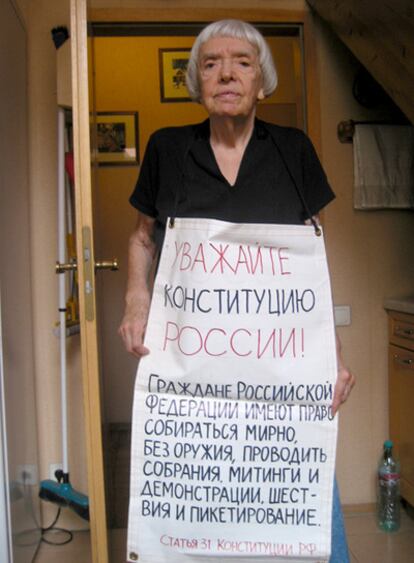 УВАЖАЙТЕ
КОНСТИТУЦИЮ
РОССИИ!
ГРАЖДАНЕ РОССИЙСКОЙ
ФЕДЕРАЦИИ ИМЕЮТ ПРАВО
СОБИРАТЬСЯ МИРНО,
БЕЗ ОРУЖИЯ, ПРОВОДИТЬ
СОБРАНИЯ, МИТИНГИ И
ДЕМОНСТРАЦИИ, ШЕСТ-
ВИЯ И ПИКЕТИРОВАНИЕ.
СТАТЬЯ 31 КОНСТИТУЦИИ РФ